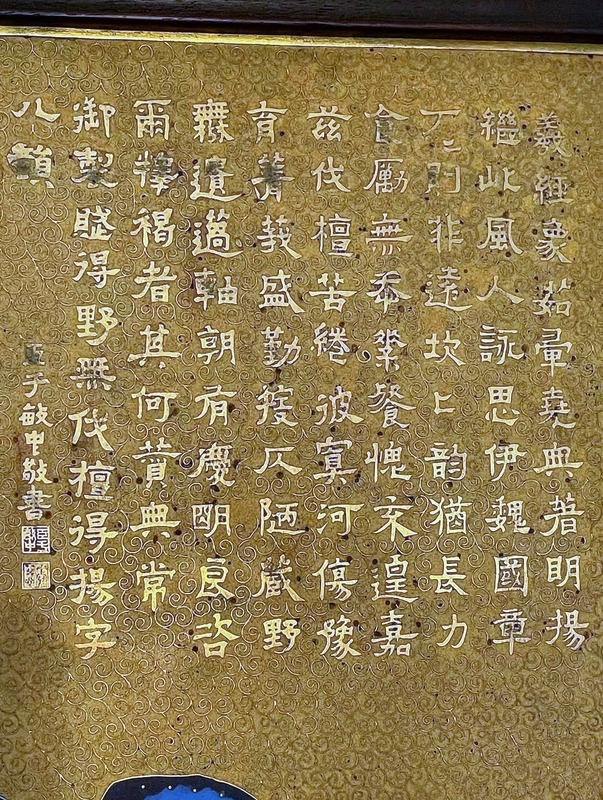 羲經彖茹彙堯典著明揚
繼此風人詠思伊魏國章
丁丁則非遠坎坎韵猶長力
食勵無忝餐愧未遑嘉
茲伐檀苦綣彼寘河傷豫
育菁莪盛勤仄陋藏野
無遺薖軸朝有慶明良咨
爾釋褐者其何贊典常
御製賦得野無伐檀得揚字
八韻
臣于敏中敬書